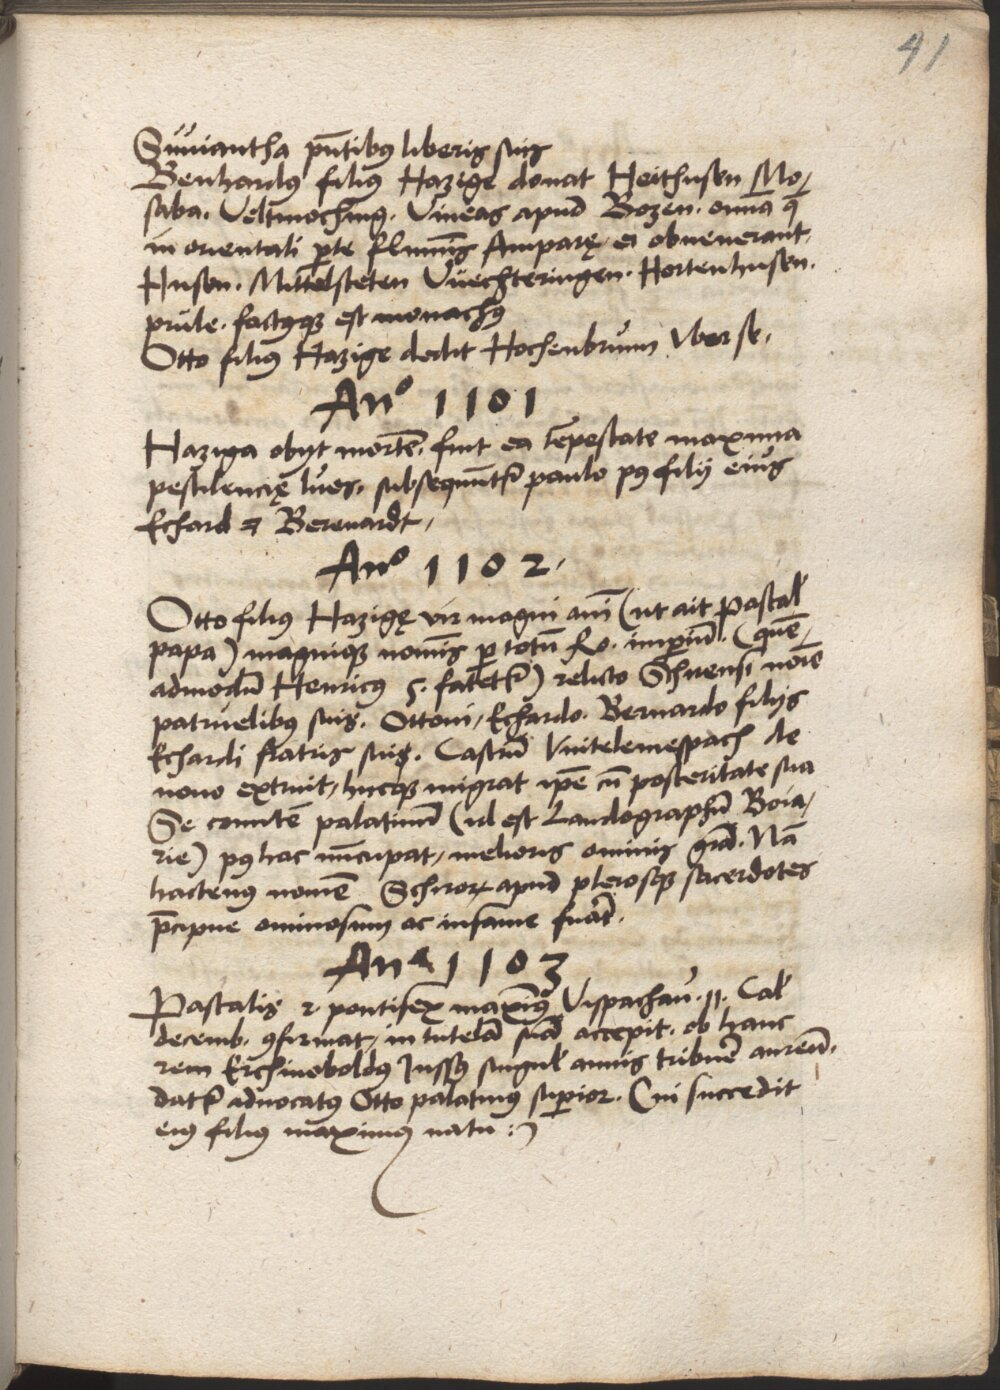 41
Suuiantha pñtibꝯ liberis suis
Benhardꝯ filiꝯ Hazige donat Heithusen Mo⸗
saba. Veltmoching. Vineas apud Bozen. omnia q̄
in orientali ꝑte fluminis Amparę ei obuenerant.
Husen. Mittelsteten Vuechteringen. Hortenhusen.
prule. factusqꝫ est monachꝯ
Otto filiꝯ Hazige dedit Hochenbrunn
Anº 1101
Haziga obijt mortē. fuit ea tēpestate maxima
pestilencię lues. subsequūtr̃ paulo pꝯ filij eiꝯ
Echard et Bereuardt.
Anº 1102.
Otto filiꝯ Hazigę vir magni aĩi (ut ait Pascal̃
papa) magniqꝫ nominis ꝑ totū Ro. imperiū. (quē
admodū Henricꝯ 5. fatetr̃) relicto Schirensi nōīe
patruelibꝯ suis. Ottoni, Echardo. Bernardo filijs
Echardi fratris suis. Castrū Vuitelemespach de
nouo extruit, hucqꝫ migrat ipē cū posteritate sua
Se comitē palatinū (id est Landographū Boia⸗
rie) pꝯhac nūcupat, melioris ominis grā. Nā
hactenꝯ nomē Schiroꝝ apud plerosqꝫ sacerdotes
p̄cipue ominosum ac infame fuāt.
Anº 1103
Pascalis 2. pontifex maximꝯ Vispachaū. 11. Cal̃
decemb. ꝯfirmat, in tutelā suā accepit. ob hanc
rem Erchinboldꝯ Jussꝯ singul̃ annis tribuē aureū.
datr̃ aduocatꝯ Otto palatinꝯ suꝑior. Cui succedit
eiꝯ filiꝯ maximꝯ natu :~